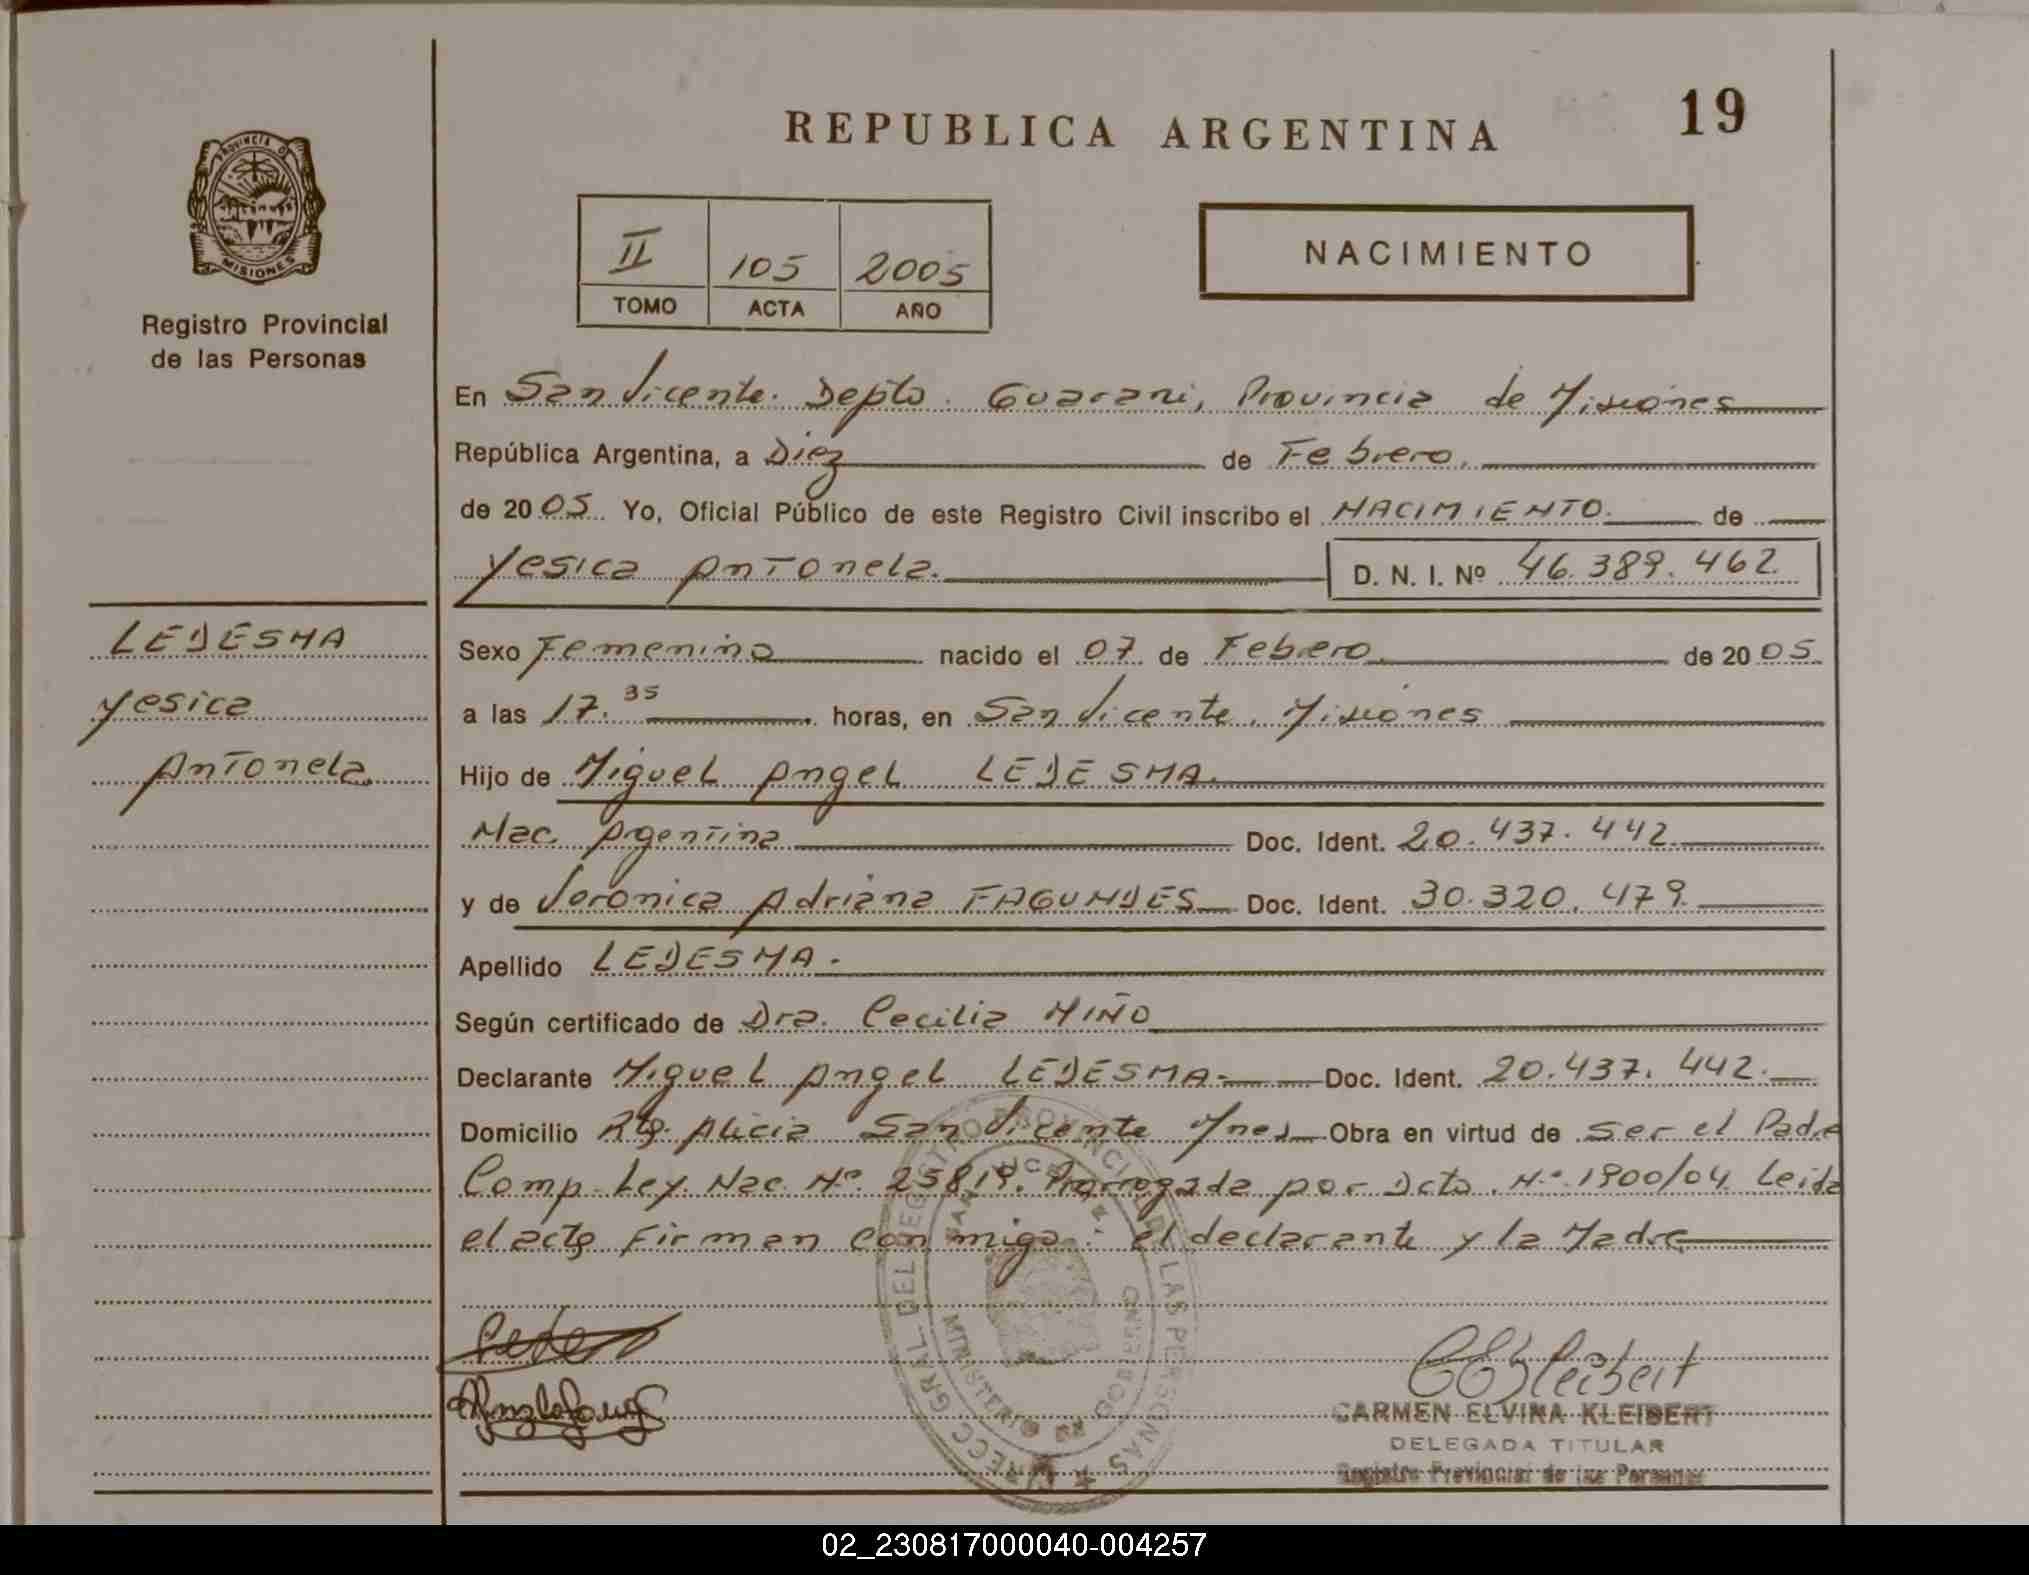 REPUBLICA ARGENTINA
19
PROVINCIA DE
MISIONES
Registro Provincial
de las Personas
II 105 2005
TOMO ACTA AÑO
NACIMIENTO
En San Vicente. Depto. Guarani, Provincia de Misiones
República Argentina, a Diez de Febrero.
de 2005. Yo, Oficial Público de este Registro Civil inscribo el NACIMIENTO. de
Yesica Antonela. D. N. I. Nº 46.389.462
LEDESMA
Yesica
Antonela
Sexo Femenino nacido el 07 de Febrero de 2005.
a las 17.35 horas, en San Vicente. Misiones
Hijo de Miguel Angel LEDESMA.
Nac. Argentina Doc. Ident. 20.437.442
y de Veronica Adriana FAGUNDES Doc. Ident. 30.320.479
Apellido LEDESMA.
Según certificado de Dra. Cecilia MIÑO
Declarante Miguel Angel LEDESMA- Doc. Ident. 20.437.442.
Domicilio Rta. Alicia San Vicente Mnes Obra en virtud de Ser el Padre
Comp. Ley. Nac. Nº. 25819. Prorrogada por Dcto. Nº. 1900/04. Leida
el acta Firman con migo: el declarante y la Madre
DIRECC GRAL DEL REGISTRO PROVINCIAL DE LAS PERSONAS
SAN VICENTE
MINISTERIO DE GOBIERNO
CARMEN ELVINA KLEIBERT
DELEGADA TITULAR
Registro Provincial de las Personas
02_230817000040-004257